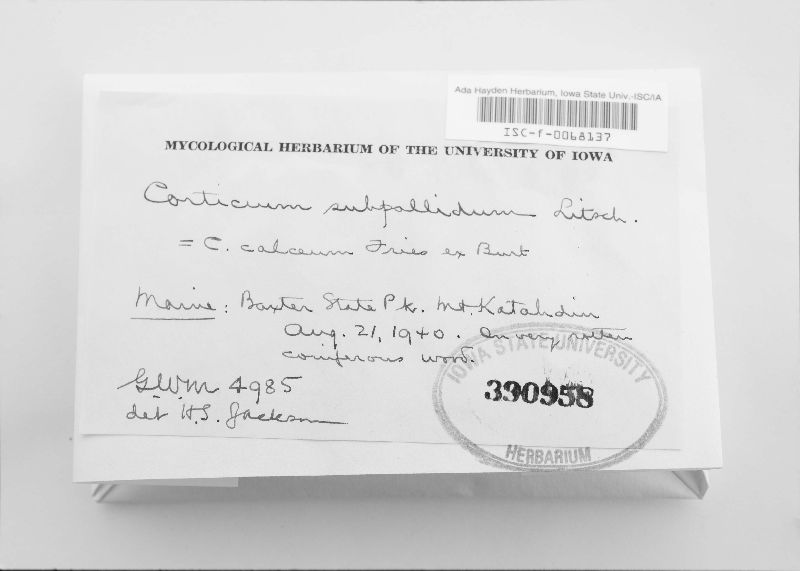 Ada Hayden Herbarium, Iowa State Univ.-ISC/IA
ISC-f-0068137
MYCOLOGICAL HERBARIUM OF THE UNIVERSITY OF IOWA
Corticium subpallidum Litsch.
= C. calceum Fries ex Burt
Maine: Baxter State Pk. Mt. Katahdin
Aug. 21, 1940. On very rotten
coniferous wood.
GWM 4985
det H.S. Jackson
IOWA STATE UNIVERSITY
390958
HERBARIUM